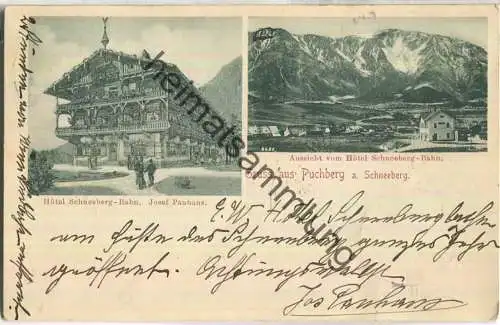 Hôtel Schneeberg-Bahn. Josef Panhans.
Aussicht vom Hôtel Schneeberg-Bahn.
Gruss aus Puchberg a. Schneeberg.
heimatsammlung.de
E. W. Hôtel Schneeberg bahn
am Fuße des Schneeberg ganzes Jahr
geöffnet. Achtungsvollst
Jos Panhans